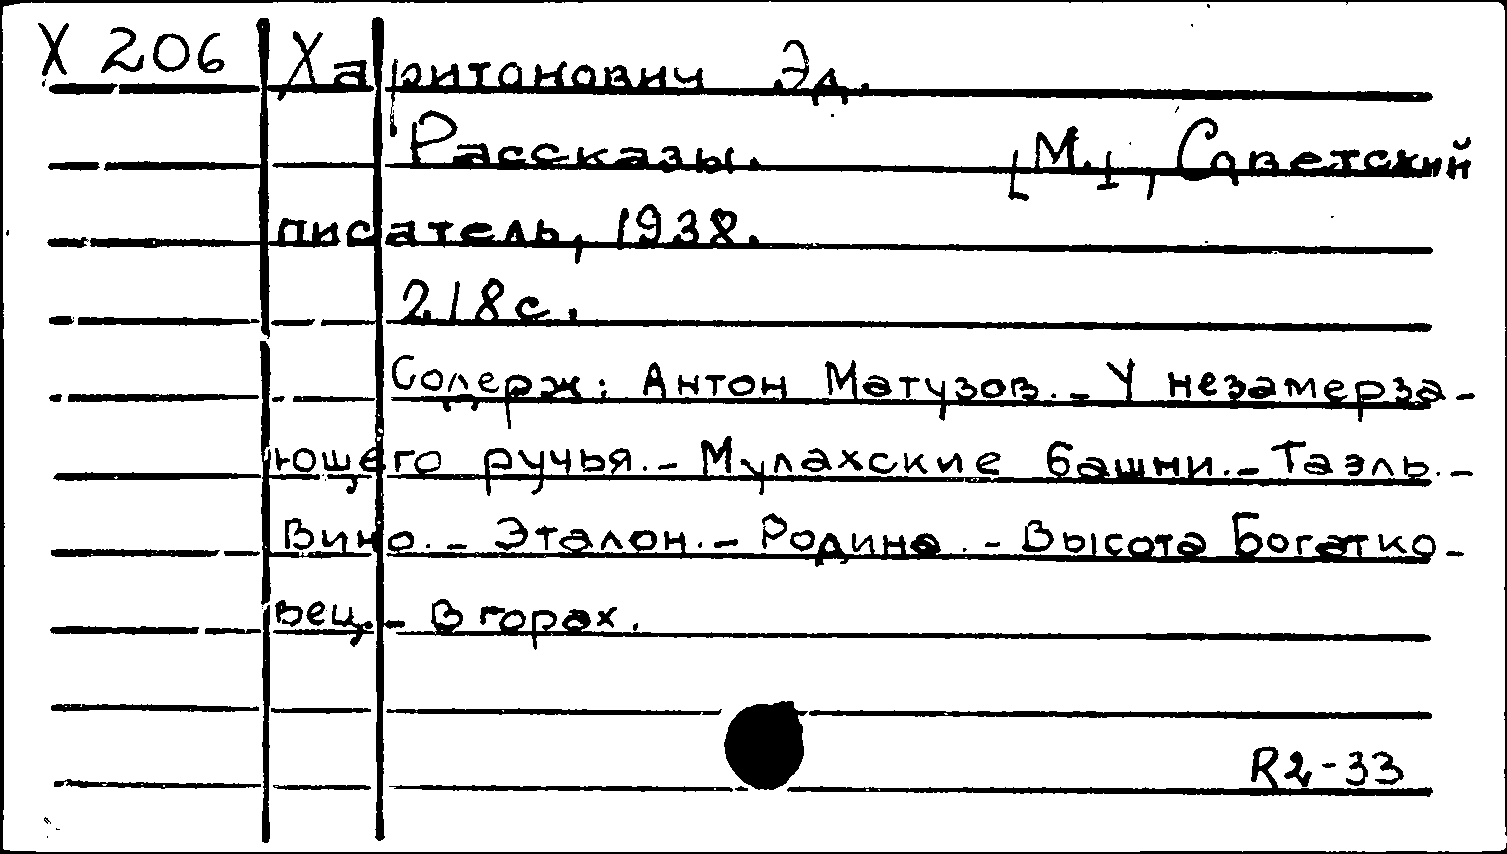 Х 206 Харитонович Эд.
Рассказы. [М.], Советский
писатель, 1938.
218 с.
Содерж: Антон Матузов. - У незамерза-
ющего ручья. - Мулахские башни. - Таэль. -
Вино. - Эталон. - Родина. - Высота Богатко-
вец. - В горах.
R2-33